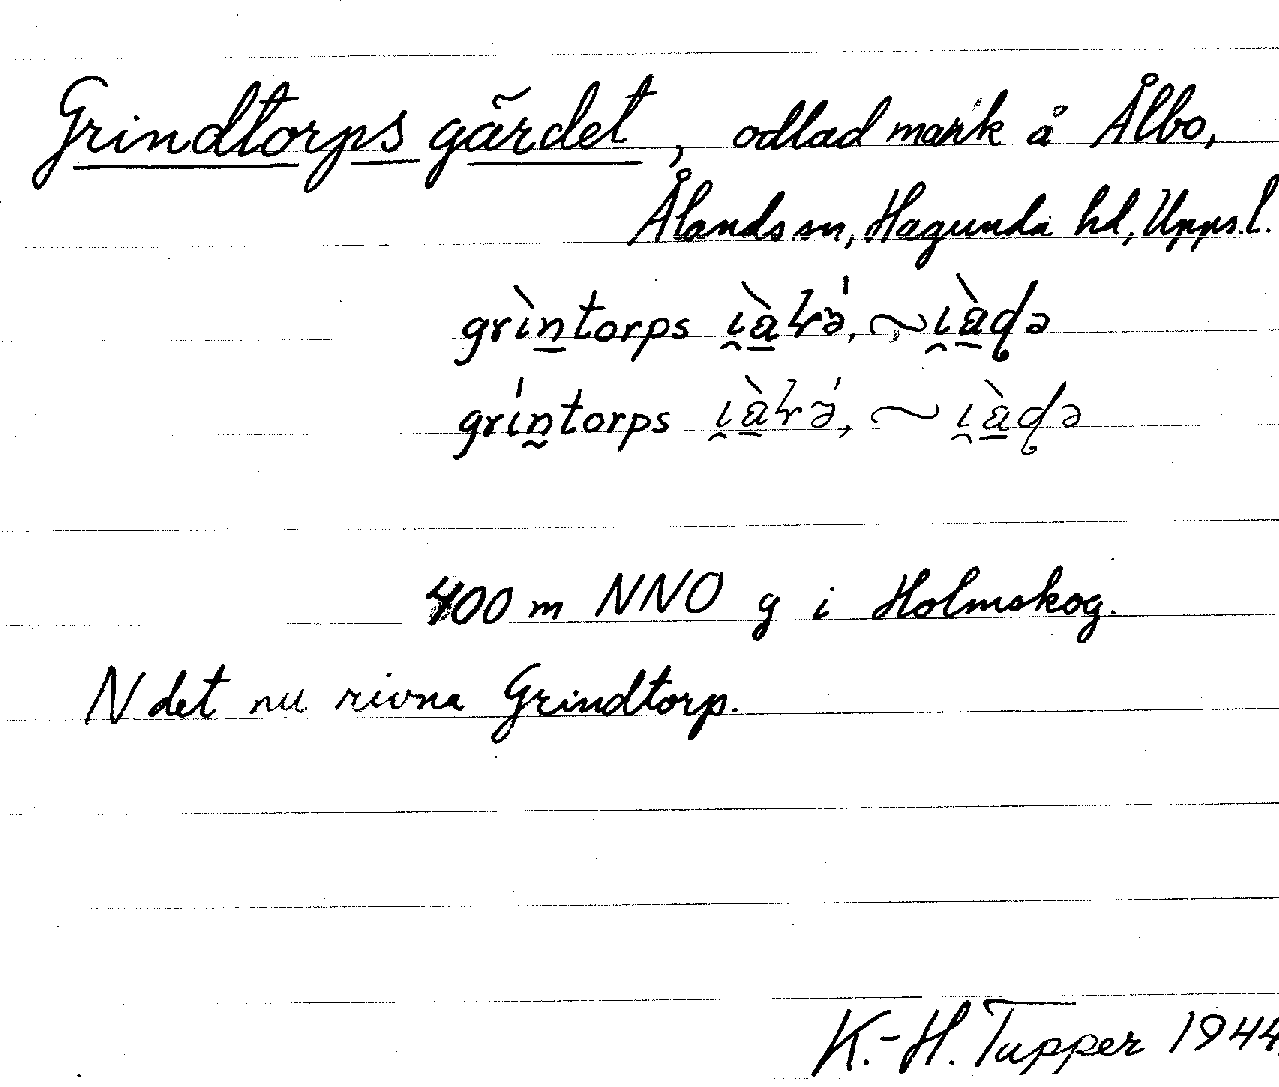 Grindtorps gärdet, odlad mark å Ålbo,
Ålands sn, Hagunda hd, Upps. l.
grintorps
grintorps
400 m NNO g i Holmskog.
N det nu rivna Grindtorp.
K.-H. Tupper 1944